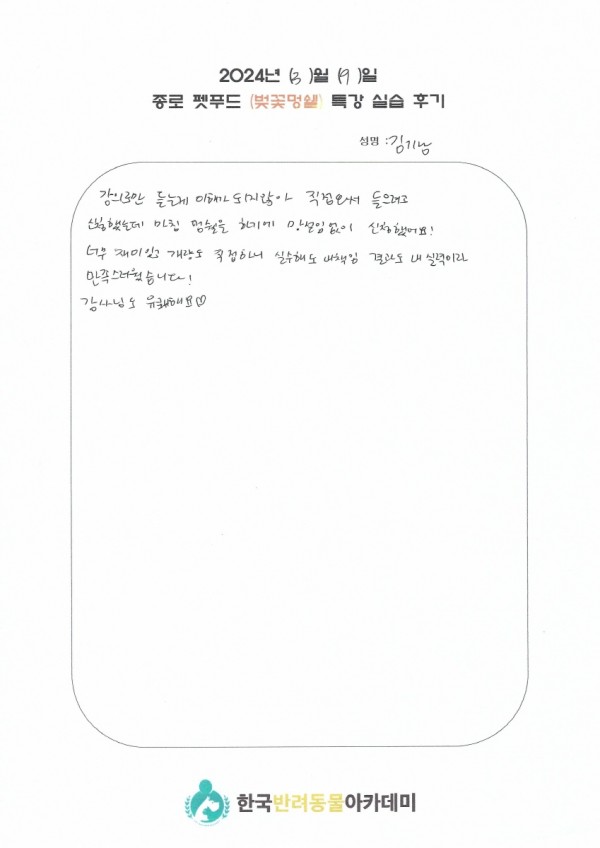 2024년 (3)월 (19)일
종로 펫푸드 (벚꽃멍쉘) 특강 실습 후기
성명 : 김기남
강의로만 듣는게 이해가 되지않아 직접와서 들으려고
했는데 마침 멍쉘을 하기에 망설임없이 신청했어요!
너무 재미있고 계량도 직접하니 실수해도 내책임 결과도 내 실력이라
만족스러웠습니다!
강사님도 유쾌해요♡
한국반려동물아카데미